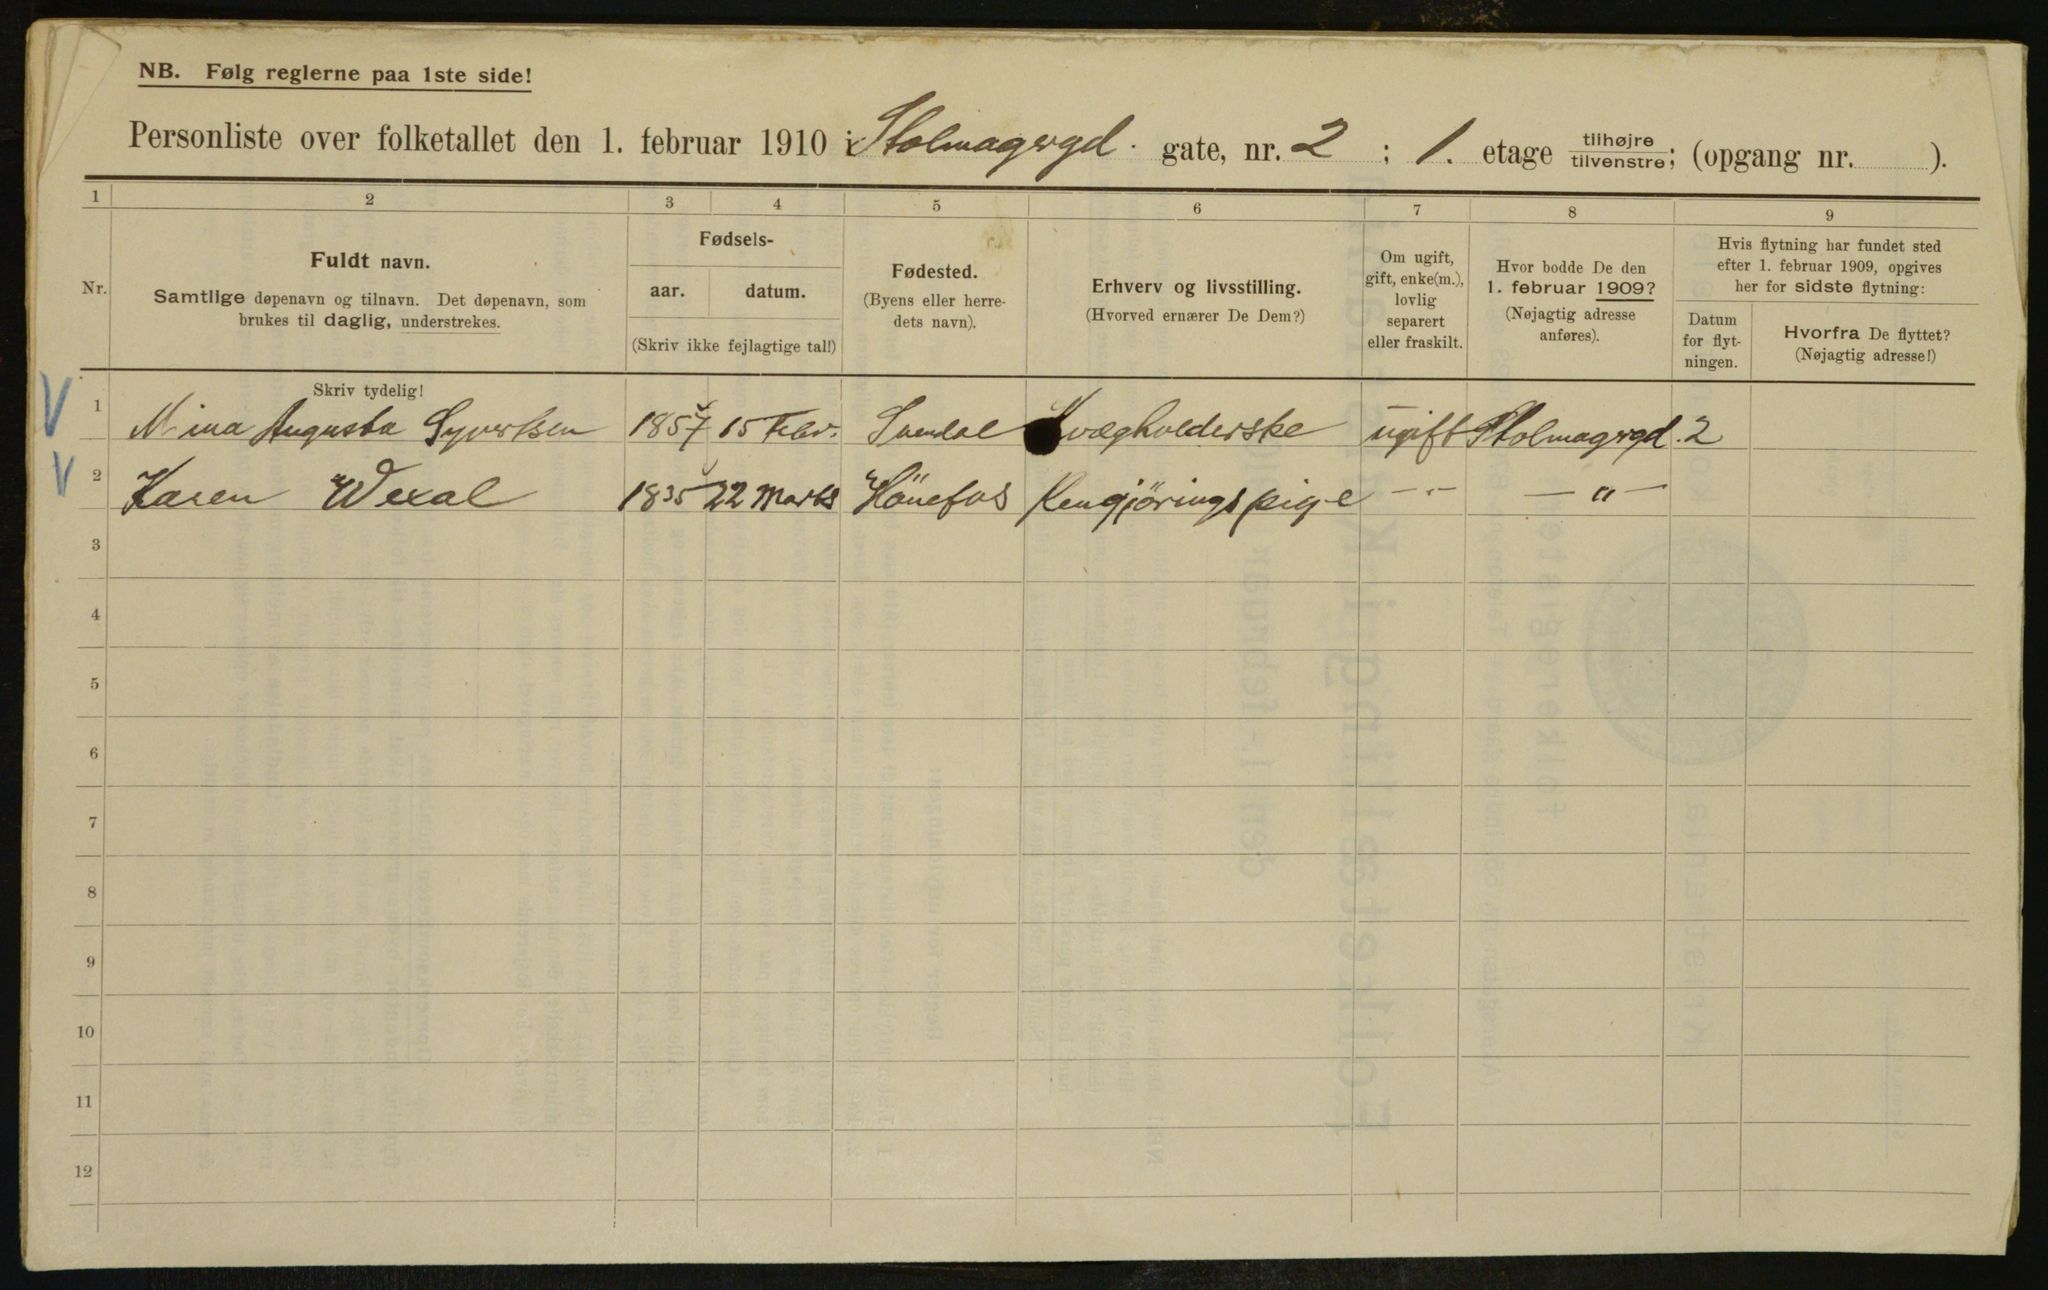 NB. Følg reglerne paa 1ste side!
Personliste over folketallet den 1. februar 1910 i Stolmagergd. gate, nr. 2 ; 1. etage tilhøjre tilvenstre; (opgang nr. ).
1 2 3 4 5 6 7 8 9
Nr.
Fuldt navn.
Samtlige døpenavn og tilnavn. Det døpenavn, som
brukes til daglig, understrekes.
Fødsels-
aar. datum.
(Skriv ikke fejlagtige tal!)
Fødested.
(Byens eller herre-
dets navn).
Erhverv og livsstilling.
(Hvorved ernærer De Dem?)
Om ugift,
gift, enke(m.),
lovlig
separert
eller fraskilt.
Hvor bodde De den
1. februar 1909?
(Nøjagtig adresse
anføres).
Hvis flytning har fundet sted
efter 1. februar 1909, opgives
her for sidste flytning:
Datum
for flyt-
ningen.
Hvorfra De flyttet?
(Nøjagtig adresse!)
Skriv tydelig!
1 Mina Augusta Syvertsen 1857 15 Febr. ugift Stolmagergd. 2
2 Karen Wexal 1835 22 Marts Hönefos Rengjøringspige -"- -"-
3
4
5
6
7
8
9
10
11
12